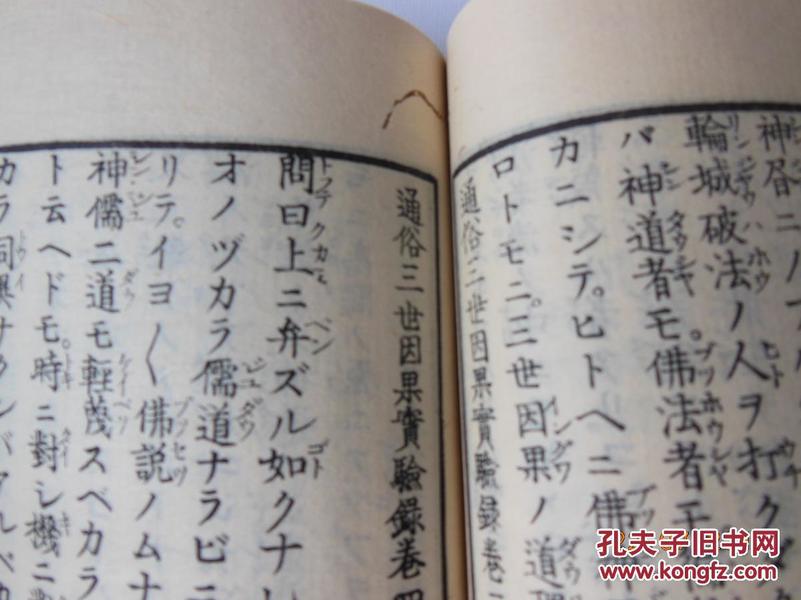 神昏ニハ
輪城破法ノ人ヲ打ク
バ神道者モ。佛法者モ
カニシテ。ヒトヘニ佛
ロトモニ。三世因果ノ道理
通俗三世因果實驗録巻三
通俗三世因果實驗録巻四
問曰上ニ弁ズル如クナ
オノヅカラ儒道ナラビニ
リテ。イヨ〱佛説ノムナ
神儒二道モ軽蔑スベカラ
ト云ヘドモ。時ニ對シ機ニ
カラ同異ナクンバアルベカ
孔夫子旧书网
www.kongfz.com